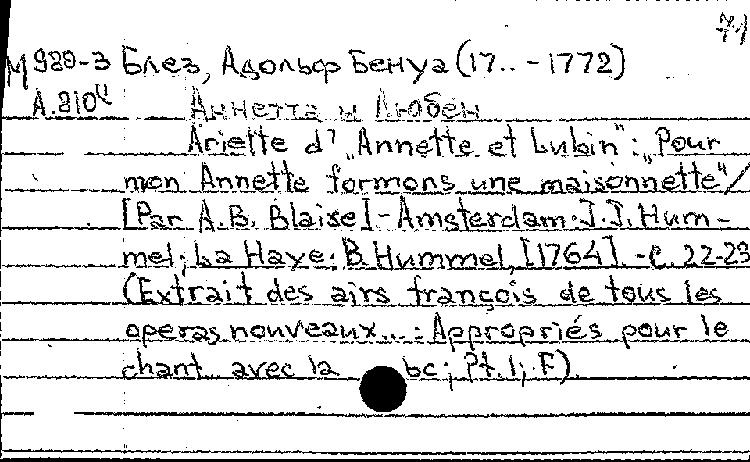 71
М 980-3 Блез, Адольф Бенуа (17.. - 1772)
А.810ч Аннетта и Любен
Ariette d' „Annette et Lubin“: „Pour
mon Annette formons une maisonnette“/
[Par A.B. Blaise] - Amsterdam: J.J. Hum-
mel; La Haye: B. Hummel, [1764]. - С. 22-23
(Extrait des airs françois de tous les
operas nouveaux...: Appropriés pour le
chant avec la bc; Pt. 1; F).